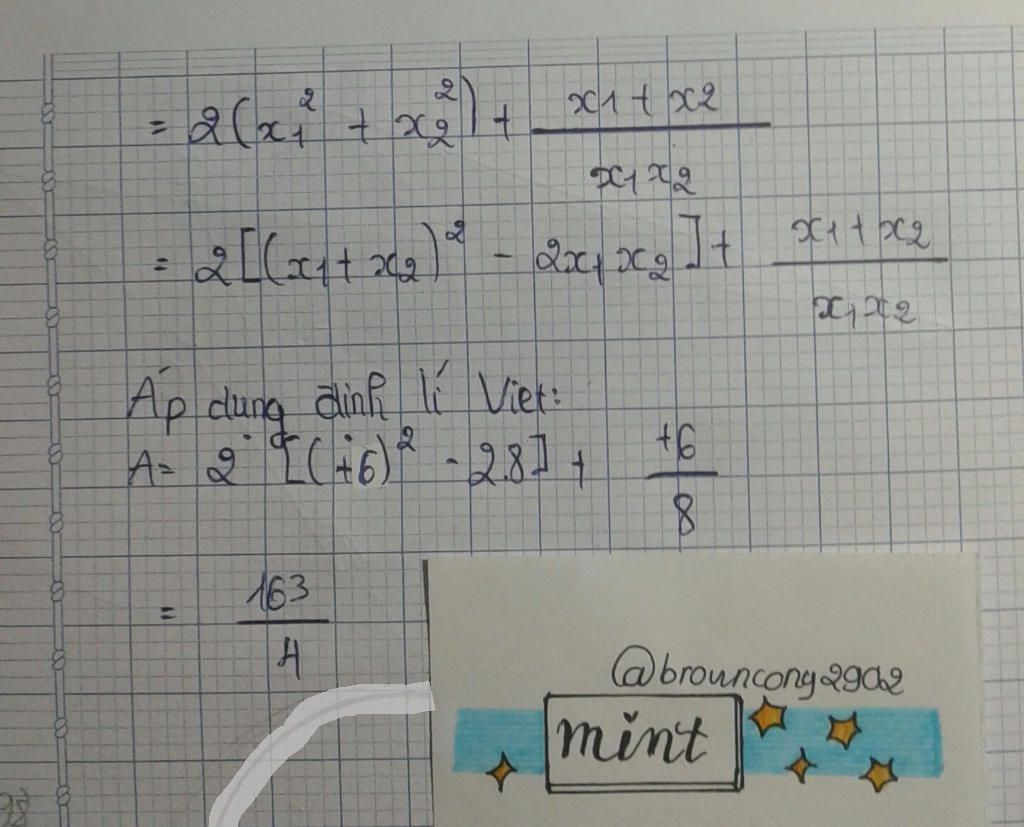 = 2(x₁² + x₂²) + (x1 + x2)/(x₁x₂)
= 2[(x₁ + x₂)² - 2x₁x₂] + (x₁ + x₂)/(x₁x₂)
Áp dụng định lí Viet:
A = 2[(+6)² - 2.8] + +6/8
= 163/4
@brouncony2902
mint